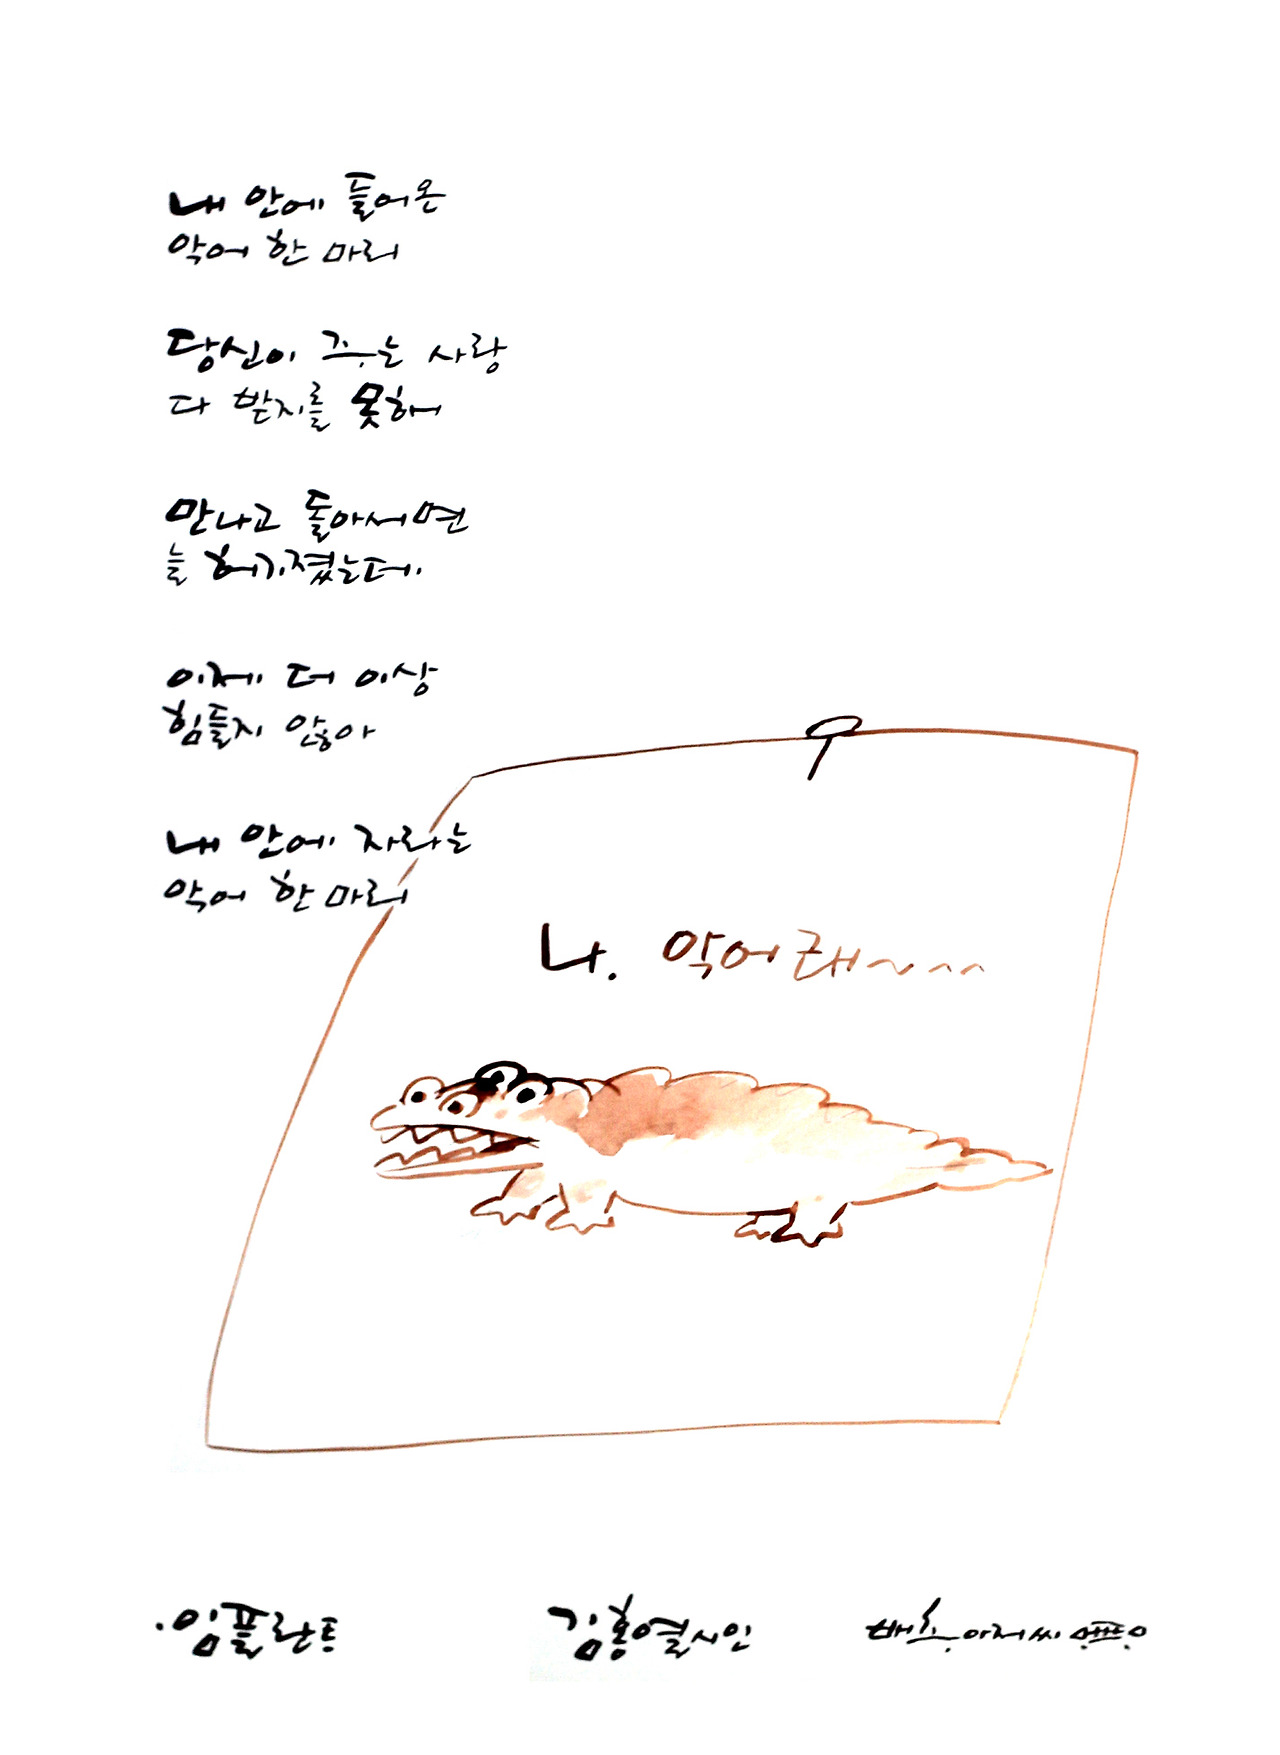 내 안에 들어온
악어 한 마리
당신이 주는 사랑
다 받지를 못해
만나고 돌아서면
늘 허기졌는데.
이제 더 이상
힘들지 않아
내 안에 자라는
악어 한 마리
나. 악어래~^^
·임플란트
김홍열시인
배추아저씨